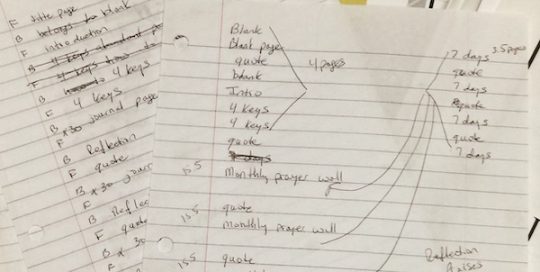 F title page
B belongs to blank
F introduction
B 4 keys
F 4 keys how to
B 4 keys
F 4 keys
B x30 journal page
B Reflection
F quote
B x 30 jour
F
B Refle
F quote
B x 30
F
B
Blank
Blank page
quote
blank
Intro
4 keys
4 keys
quote
7 days
Monthly prayer wall
quote
monthly prayer wall
quote
4 pages
7 days 3.5 pages
quote
7 days
quote
7 days
quote
7 days
15.5
15.5
15.5
Reflection
Praises